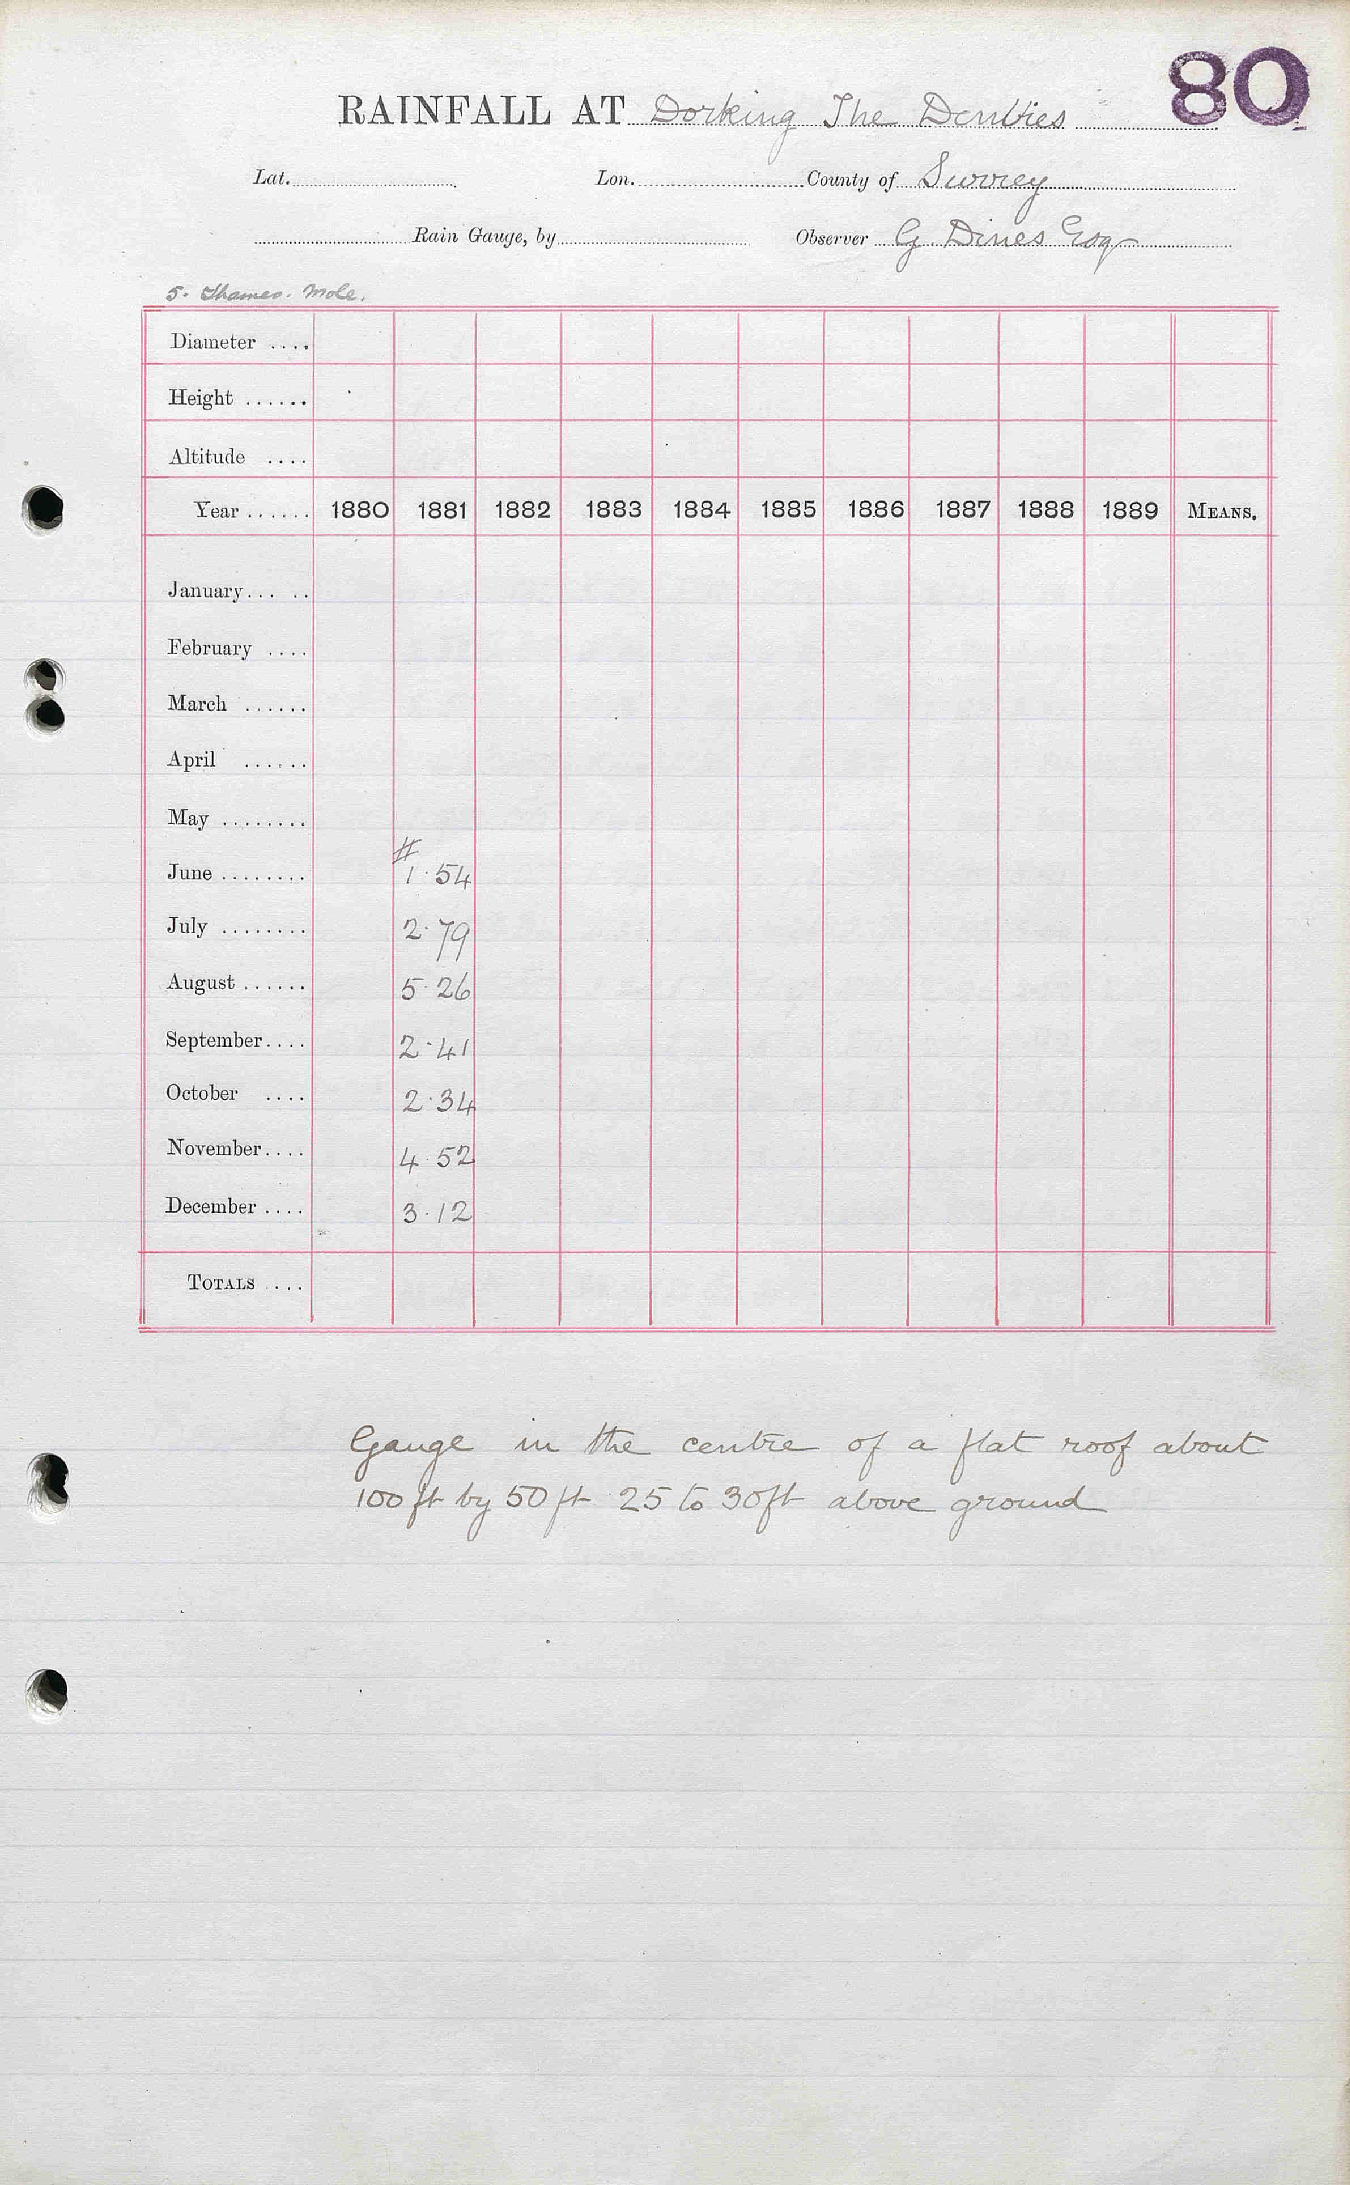 80
RAINFALL AT Dorking The Denbies
Lat. Lon. County of Surrey
Rain Gauge, by Observer G Dines Esq
5. Thames. Mole.
Diameter ....
Height ......
Altitude ....
Year ...... 1880 1881 1882 1883 1884 1885 1886 1887 1888 1889 MEANS.
January... ..
February ....
March ......
April ......
May ........
#
June ........ 1.54
July ........ 2.79
August ...... 5.26
September.... 2.41
October .... 2.34
November.... 4.52
December .... 3.12
TOTALS ....
Gauge in the centre of a flat roof about
100 ft by 50 ft 25 to 30ft above ground